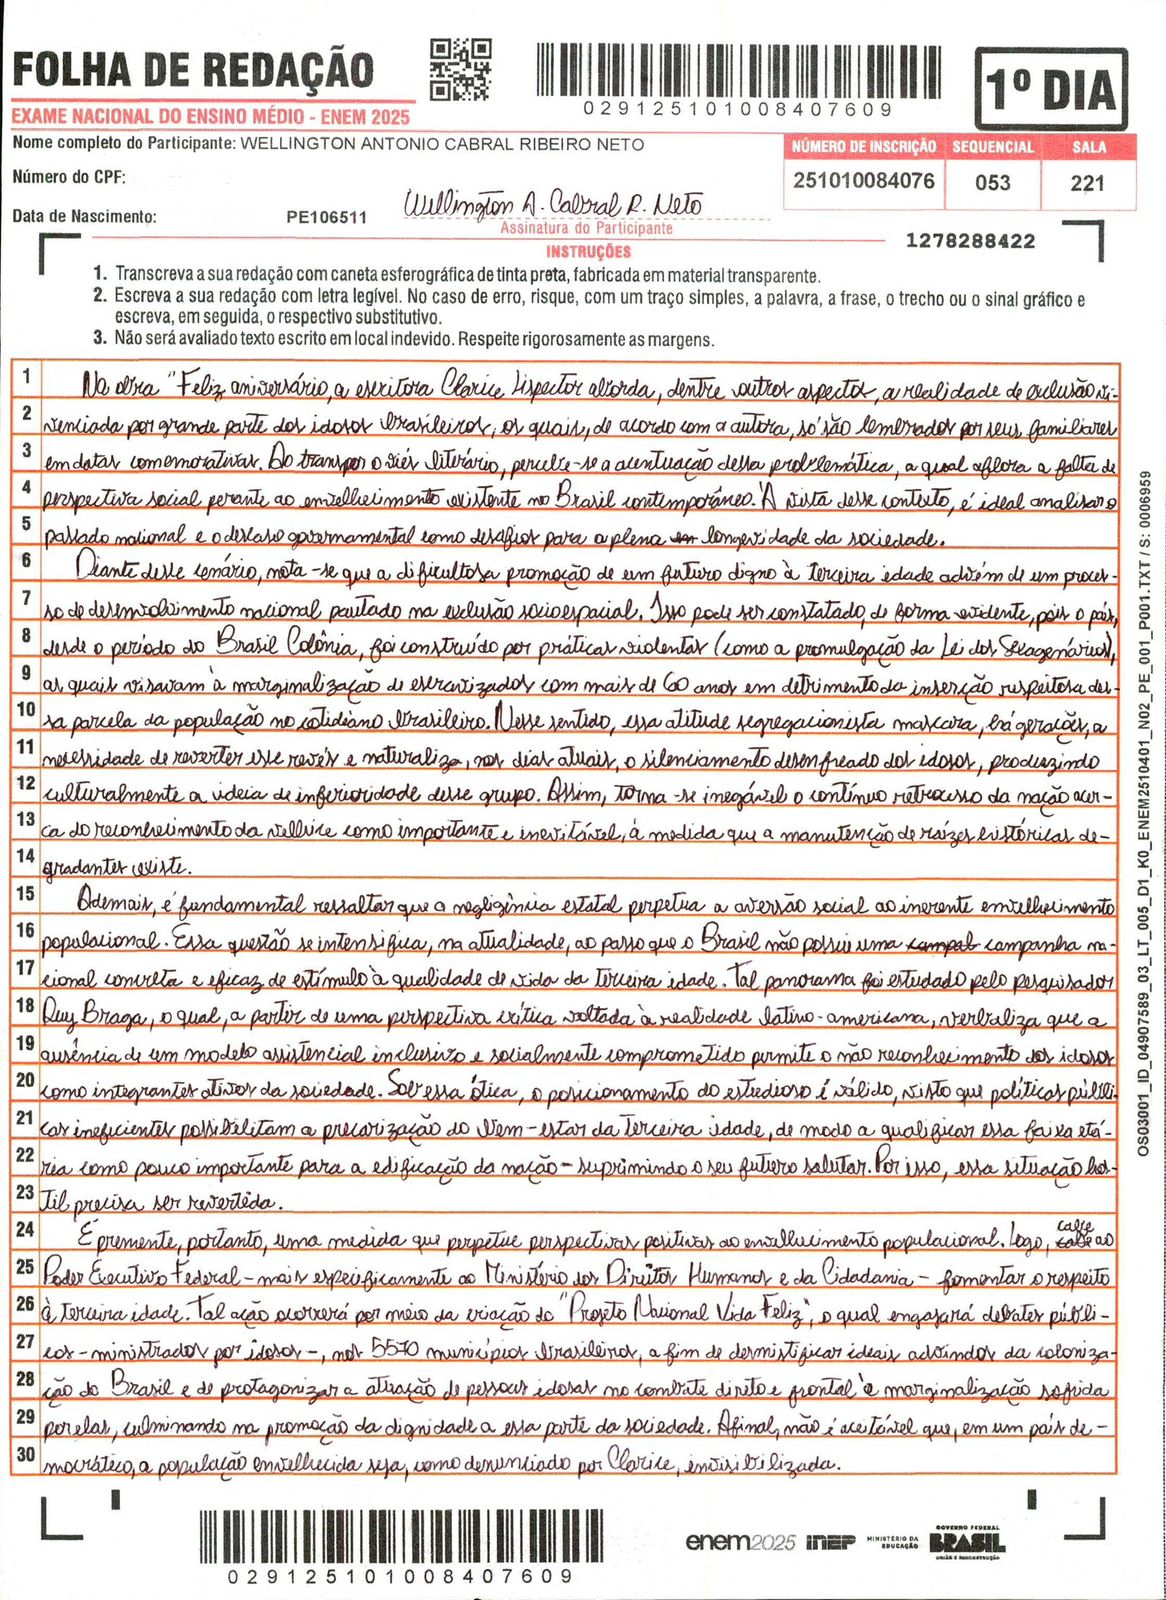 FOLHA DE REDAÇÃO
EXAME NACIONAL DO ENSINO MÉDIO - ENEM 2025
029125101008407609
1º DIA
Nome completo do Participante: WELLINGTON ANTONIO CABRAL RIBEIRO NETO
Número do CPF:
Data de Nascimento:
PE106511
Wellington A. Cabral R. Neto
Assinatura do Participante
NÚMERO DE INSCRIÇÃO SEQUENCIAL SALA
251010084076 053 221
1278288422
INSTRUÇÕES
1. Transcreva a sua redação com caneta esferográfica de tinta preta, fabricada em material transparente.
2. Escreva a sua redação com letra legível. No caso de erro, risque, com um traço simples, a palavra, a frase, o trecho ou o sinal gráfico e
escreva, em seguida, o respectivo substitutivo.
3. Não será avaliado texto escrito em local indevido. Respeite rigorosamente as margens.
1 Na obra "Feliz aniversário, a escritora Clarice Lispector aborda, dentre outros aspectos, a realidade de exclusão vi-
2 venciada por grande parte dos idosos brasileiros, os quais, de acordo com a autora, só são lembrados por seus familiares
3 em datas comemorativas. Ao transpor o viés literário, percebe-se a acentuação dessa problemática, a qual aflora a falta de
4 perspectiva social perante ao envelhecimento existente no Brasil contemporâneo. À vista desse contexto, é ideal analisar o
5 passado nacional e o descaso governamental como desafios para a plena em longevidade da sociedade.
6 Diante desse cenário, nota-se que a dificultosa promoção de um futuro digno à terceira idade advém de um proces-
7 so de desenvolvimento nacional pautado na exclusão socioespacial. Isso pode ser constatado, de forma evidente, pois o país,
8 desde o período do Brasil Colônia, foi construído por práticas violentas (como a promulgação da Lei dos Sexagenários),
9 as quais visavam à marginalização de escravizados com mais de 60 anos em detrimento da inserção respeitosa des-
10 sa parcela da população no cotidiano brasileiro. Nesse sentido, essa atitude segregacionista mascara, há gerações, a
11 necessidade de reverter esse revés e naturaliza, nos dias atuais, o silenciamento desenfreado dos idosos, produzindo
12 culturalmente a ideia de inferioridade desse grupo. Assim, torna-se inegável o contínuo retrocesso da nação acer-
13 ca do reconhecimento da velhice como importante e inevitável, à medida que a manutenção de raízes históricas de-
14 gradantes existe.
15 Ademais, é fundamental ressaltar que a negligência estatal perpetua a aversão social ao inerente envelhecimento
16 populacional. Essa questão se intensifica, na atualidade, ao passo que o Brasil não possui uma campal campanha na-
17 cional concreta e eficaz de estímulo à qualidade de vida da terceira idade. Tal panorama foi estudado pelo pesquisador
18 Ruy Braga, o qual, a partir de uma perspectiva crítica voltada à realidade latino-americana, verbaliza que a
19 ausência de um modelo assistencial inclusivo e socialmente comprometido permite o não reconhecimento dos idosos
20 como integrantes ativos da sociedade. Sob essa ótica, o posicionamento do estudioso é válido, visto que políticas públi-
21 cas ineficientes possibilitam a precarização do bem-estar da terceira idade, de modo a qualificar essa faixa etá-
22 ria como pouco importante para a edificação da nação - suprimindo o seu futuro salutar. Por isso, essa situação hos-
23 til precisa ser revertida.
24 É premente, portanto, uma medida que perpetue perspectivas positivas ao envelhecimento populacional. Logo, cabe ao
25 Poder Executivo Federal - mais especificamente ao Ministério dos Direitos Humanos e da Cidadania - fomentar o respeito
26 à terceira idade. Tal ação ocorrerá por meio da criação do "Projeto Nacional Vida Feliz", o qual engajará debates públi-
27 cos - ministrados por idosos -, nos 5570 municípios brasileiros, a fim de desmistificar ideais advindos da coloniza-
28 ção do Brasil e de protagonizar a atuação de pessoas idosas no combate direto e frontal à marginalização sofrida
29 por elas, culminando na promoção da dignidade a essa parte da sociedade. Afinal, não é aceitável que, em um país de-
30 mocrático, a população envelhecida seja, como denunciado por Clarice, invisibilizada.
OS03001_ID_04907589_03_LT_005_D1_K0_ENEM2510401_N02_PE_001_P001.TXT / S: 0006959
029125101008407609
enem2025 INEP MINISTÉRIO DA
EDUCAÇÃO
GOVERNO FEDERAL
BRASIL
UNIÃO E RECONSTRUÇÃO